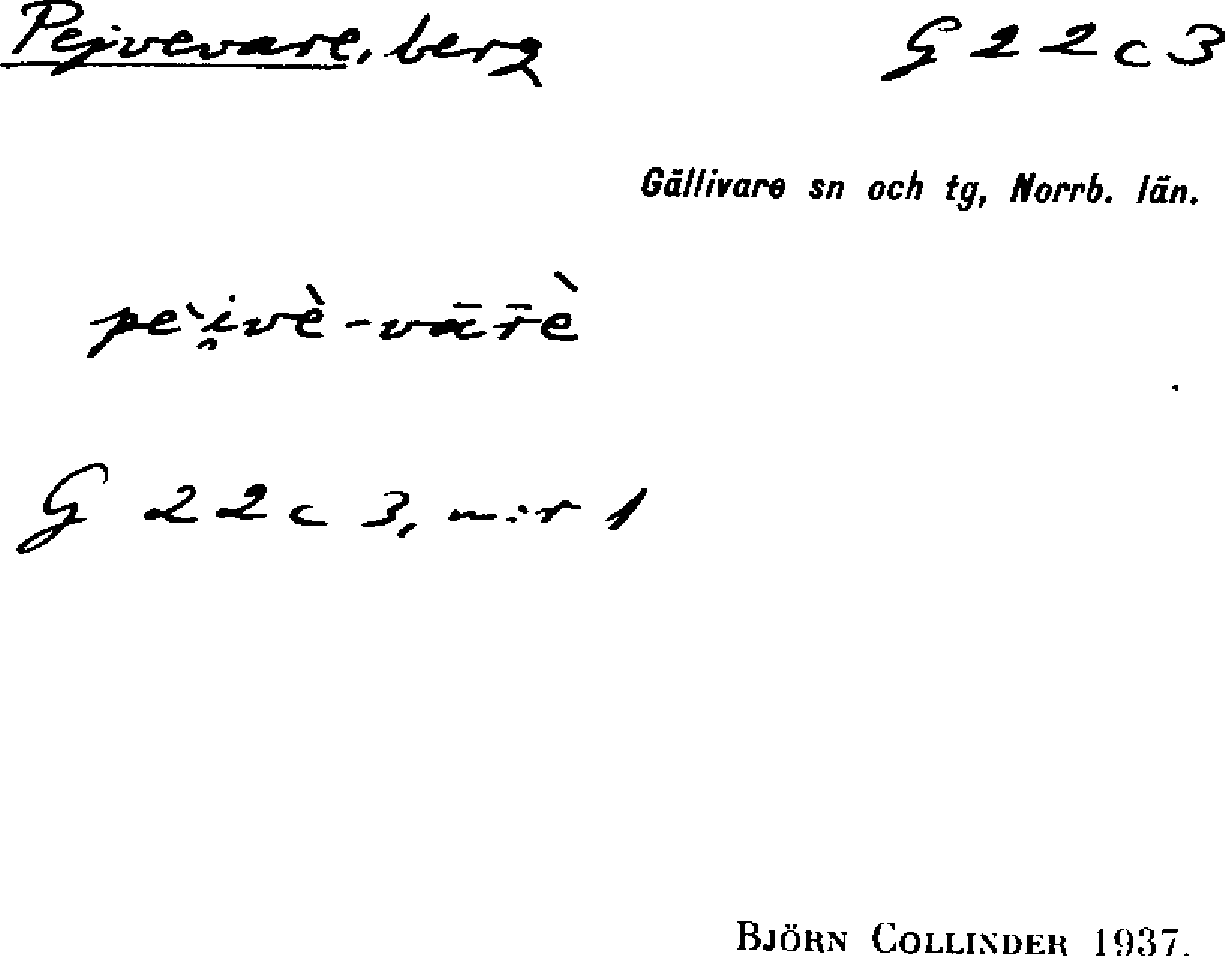 Pejvevare, berg G 22 c 3
Gällivare sn och tg, Norrb. län.
pe`i̯vè-vārè
G 22 c 3, n:r 1
BJÖRN COLLINDER 1937.